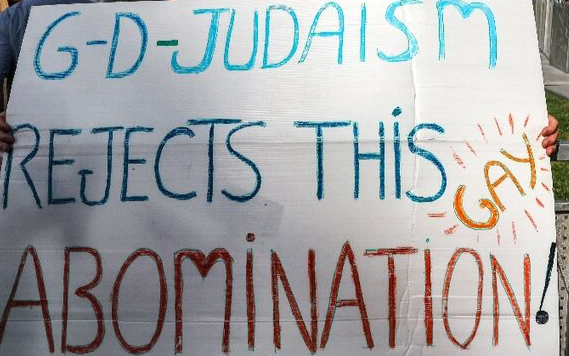 G-D-JUDAISM
REJECTS THIS GAY
ABOMINATION!